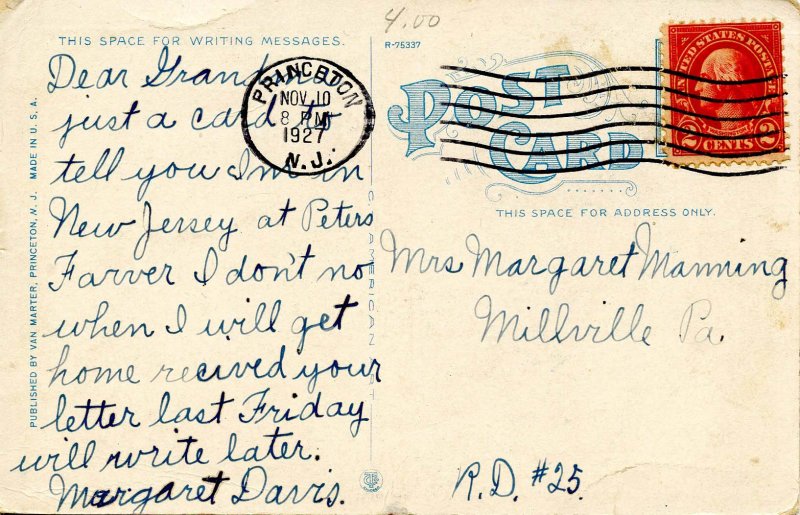 4.00
THIS SPACE FOR WRITING MESSAGES.
R-75337
Dear Grandma
just a card to
tell you I'm in
New Jersey at Peters
Farver I don't no
when I will get
home recived your
letter last Friday
will write later.
Margaret Davis.
PRINCETON
NOV 10
8 PM
1927
N.J.
POST
CARD
UNITED STATES POSTAGE
2 CENTS 2
THIS SPACE FOR ADDRESS ONLY.
Mrs Margaret Manning
Millville Pa.
R.D. #25.
PUBLISHED BY VAN MARTER, PRINCETON, N. J. MADE IN U. S. A.
C. AMERICAN ART